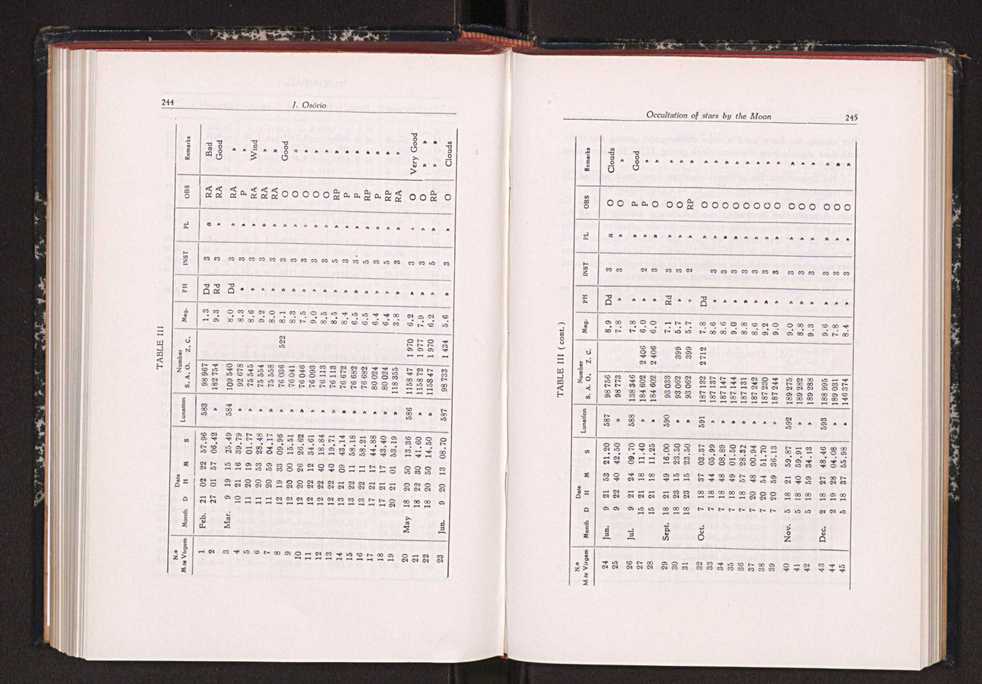 244
J. Osório
TABLE III
N.º M.te Virgem Month Date D H M S Lunation Number S. A. O. Z. C. Mag. PH INST PL OBS Remarks
1 Feb. 21 02 22 57.96 583 98 967 1.3 Dd 3 a RA Bad
2 27 01 57 06.42 » 182 754 9.3 Rd 3 » RA Good
3 Mar. 9 19 15 25.49 584 109 540 8.0 Dd 3 » RA »
4 10 21 16 39.79 » 92 678 8.3 » 3 » P »
5 11 20 19 01.77 » 75 545 8.6 » 3 » RA Wind
6 11 20 53 28.48 » 75 554 9.2 » 3 » RA »
7 11 20 59 04.17 » 75 558 8.0 » 3 » RA »
8 12 19 33 09.96 » 76 036 522 8.1 » 3 » O Good
9 12 20 00 15.51 » 76 041 8.3 » 3 » O »
10 12 20 26 26.62 » 76 046 7.5 » 3 » O »
11 12 22 12 34.61 » 76 093 9.0 » 3 » O »
12 12 22 40 18.84 » 76 113 8.5 » 3 » O »
13 12 22 40 19.71 » 76 113 8.5 » 5 » RP »
14 13 21 09 43.14 » 76 672 8.4 » 3 » P »
15 13 22 11 58.18 » 76 682 6.5 » 3 » P »
16 13 22 11 58.21 » 76 682 6.5 » 5 » RP »
17 17 21 17 44.88 » 80 024 6.4 » 3 » P »
18 17 21 17 43.40 » 80 024 6.4 » 5 » RP »
19 20 21 01 53.19 » 118 355 3.8 » 3 » RA »
20 May 18 20 50 13.36 586 1158 47 1 970 6.2 » 3 » O Very Good
21 18 22 30 41.60 » 1158 72 1 977 7.9 » 3 » O » »
22 18 20 50 14.50 » 1158 47 1 970 6.2 » 5 » RP » »
23 Jun. 9 20 13 08.70 587 98 733 1 434 5.6 » 3 » O Clouds
Occultation of stars by the Moon
245
TABLE III ( cont. )
N.º M.te Virgem Month Date D H M S Lunation Number S. A. O. Z. C. Mag. PH INST PL OBS Remarks
24 Jun. 9 21 53 21.20 587 98 756 8.9 Dd 3 a O Clouds
25 9 22 40 42.50 » 98 773 7.8 » 3 » O »
26 Jul. 9 21 24 09.70 588 138 346 7.8 » » P Good
27 15 21 18 11.40 » 184 602 2 406 6.0 » 2 » P »
28 15 21 18 11.25 » 184 602 2 406 6.0 » 3 » O »
29 Sept. 18 21 49 16.00 590 93 033 7.1 Rd 3 » O »
30 18 23 15 23.50 » 93 062 399 5.7 » 3 » O »
31 18 23 15 23.50 » 93 062 399 5.7 » 2 » RP »
32 Oct. 7 18 37 03.37 591 187 132 2 712 7.8 Dd » O »
33 7 18 44 05.99 » 187 137 8.6 » 3 » O »
34 7 18 48 08.89 » 187 147 8.6 » 3 » O »
35 7 18 49 01.50 » 187 144 9.0 » 3 » O »
36 7 18 57 28.52 » 187 131 8.8 » 3 » O »
37 7 20 48 00.94 » 187 242 8.6 » 3 » O »
38 7 20 54 51.70 » 187 230 9.2 » 3 » O »
39 7 20 59 36.13 » 187 244 9.0 » 3 » O »
40 Nov. 5 18 21 59.87 592 189 275 9.0 » 3 » O »
41 5 18 40 59.91 » 189 282 8.8 » 3 » O »
42 5 18 59 34.13 » 189 288 9.3 » 3 » O »
43 Dec. 2 18 27 48.46 593 188 995 9.6 » 3 » O »
44 2 19 28 04.08 » 189 031 7.8 » 3 » O »
45 5 18 27 55.98 » 146 274 8.4 » 3 » O »